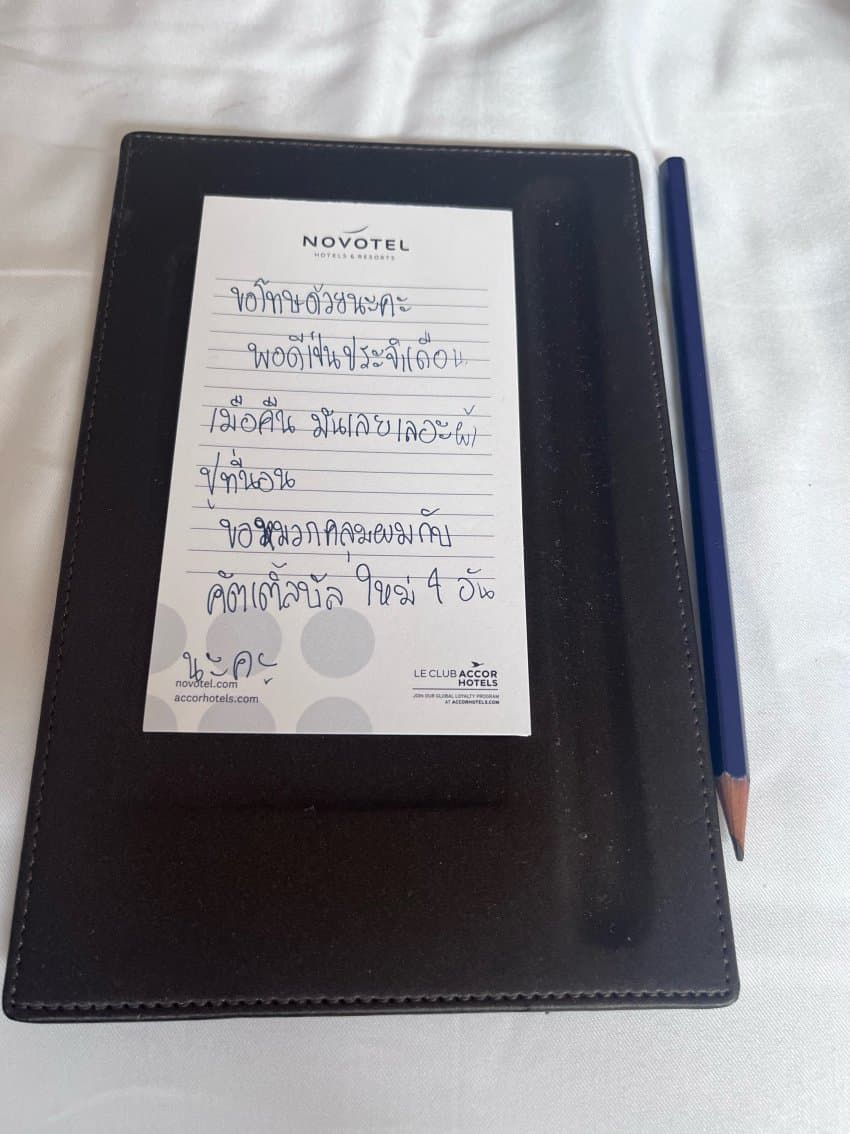 NOVOTEL
HOTELS & RESORTS
ขอโทษด้วยนะคะ
พอดีเป็นประจำเดือน
เมื่อคืน มันเลยเลอะผ้า
ปูที่นอน
ขอหมวกคลุมผมกับ
คัตเติ้ลบัล ใหม่ 4 อัน
นะคะ
novotel.com
accorhotels.com
LE CLUB ACCOR
HOTELS
JOIN OUR GLOBAL LOYALTY PROGRAM
AT ACCORHOTELS.COM